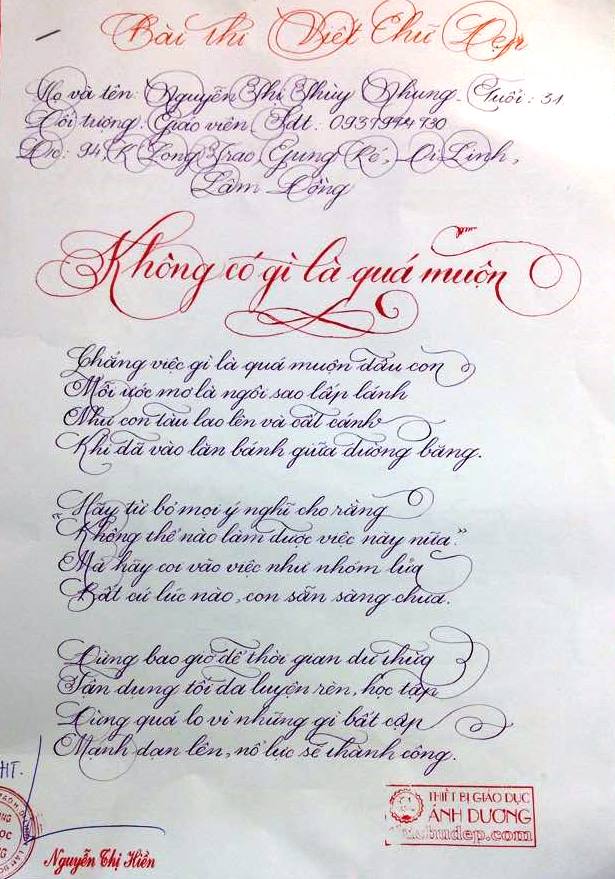 Bài thi Viết Chữ Đẹp
Họ và tên: Nguyễn Thị Thùy Nhung. Tuổi: 31
Đối tượng: Giáo viên. Sđt: 0937974930
Đ/c: 94, K'Long Trao, Gung Ré, Di Linh,
Lâm Đồng
Không có gì là quá muộn
Chẳng việc gì là quá muộn đâu con
Mỗi ước mơ là ngôi sao lấp lánh
Như con tàu lao lên và cất cánh
Khi đã vào lăn bánh giữa đường băng.
Hãy từ bỏ mọi ý nghĩ cho rằng
"Không thể nào làm được việc này nữa."
Mà hãy coi vào việc như nhóm lửa
Bất cứ lúc nào, con sẵn sàng chưa.
Đừng bao giờ để thời gian dư thừa
Tận dụng tối đa luyện rèn, học tập
Đừng quá lo vì những gì bất cập
Mạnh dạn lên, nỗ lực sẽ thành công.
HT.
Nguyễn Thị Hiền
THIẾT BỊ GIÁO DỤC
ÁNH DƯƠNG